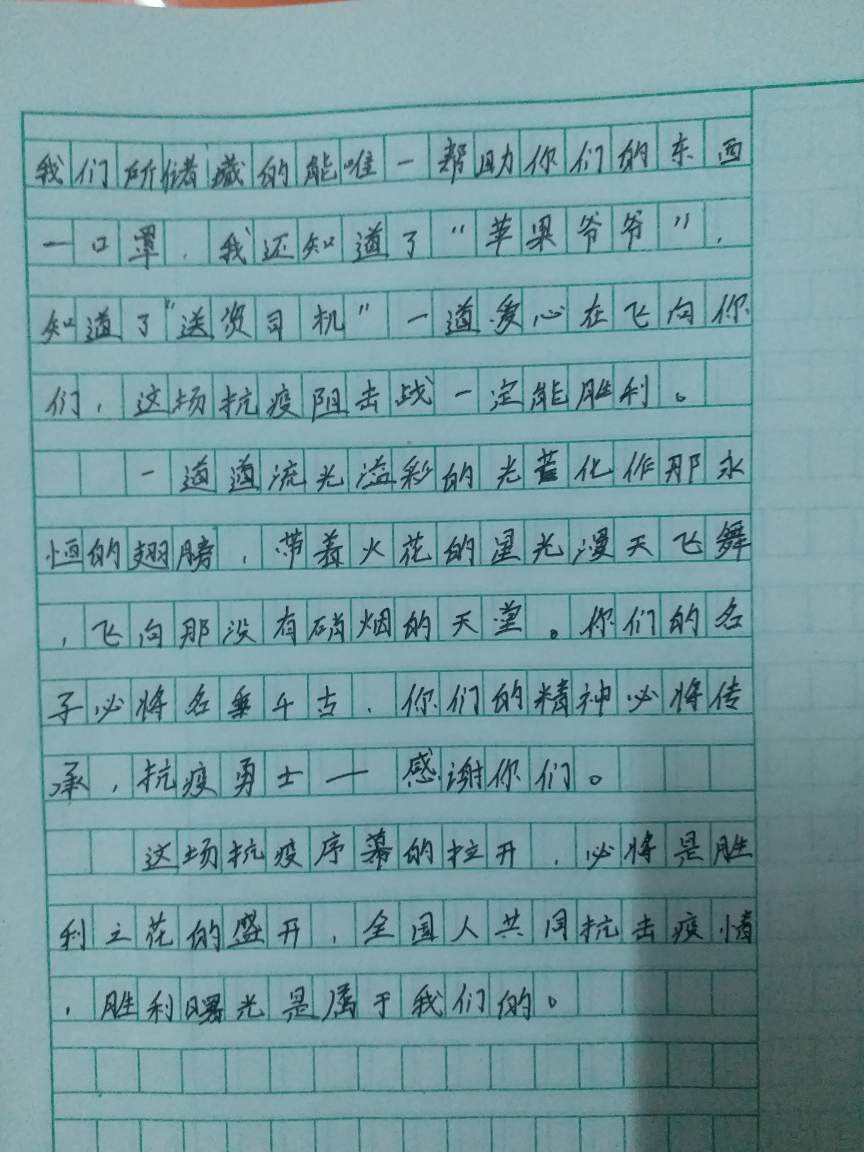 我们所储藏的能唯一帮助你们的东西
一口罩，我还知道了“苹果爷爷”，
知道了“送资司机”一道爱心在飞向你
们，这场抗疫阻击战一定能胜利。
一道道流光溢彩的光芒化作那永
恒的翅膀，带着火花的星光漫天飞舞
，飞向那没有硝烟的天堂。你们的名
子必将名垂千古，你们的精神必将传
承，抗疫勇士—感谢你们。
这场抗疫序幕的拉开，必将是胜
利之花的盛开，全国人共同抗击疫情
，胜利曙光是属于我们的。